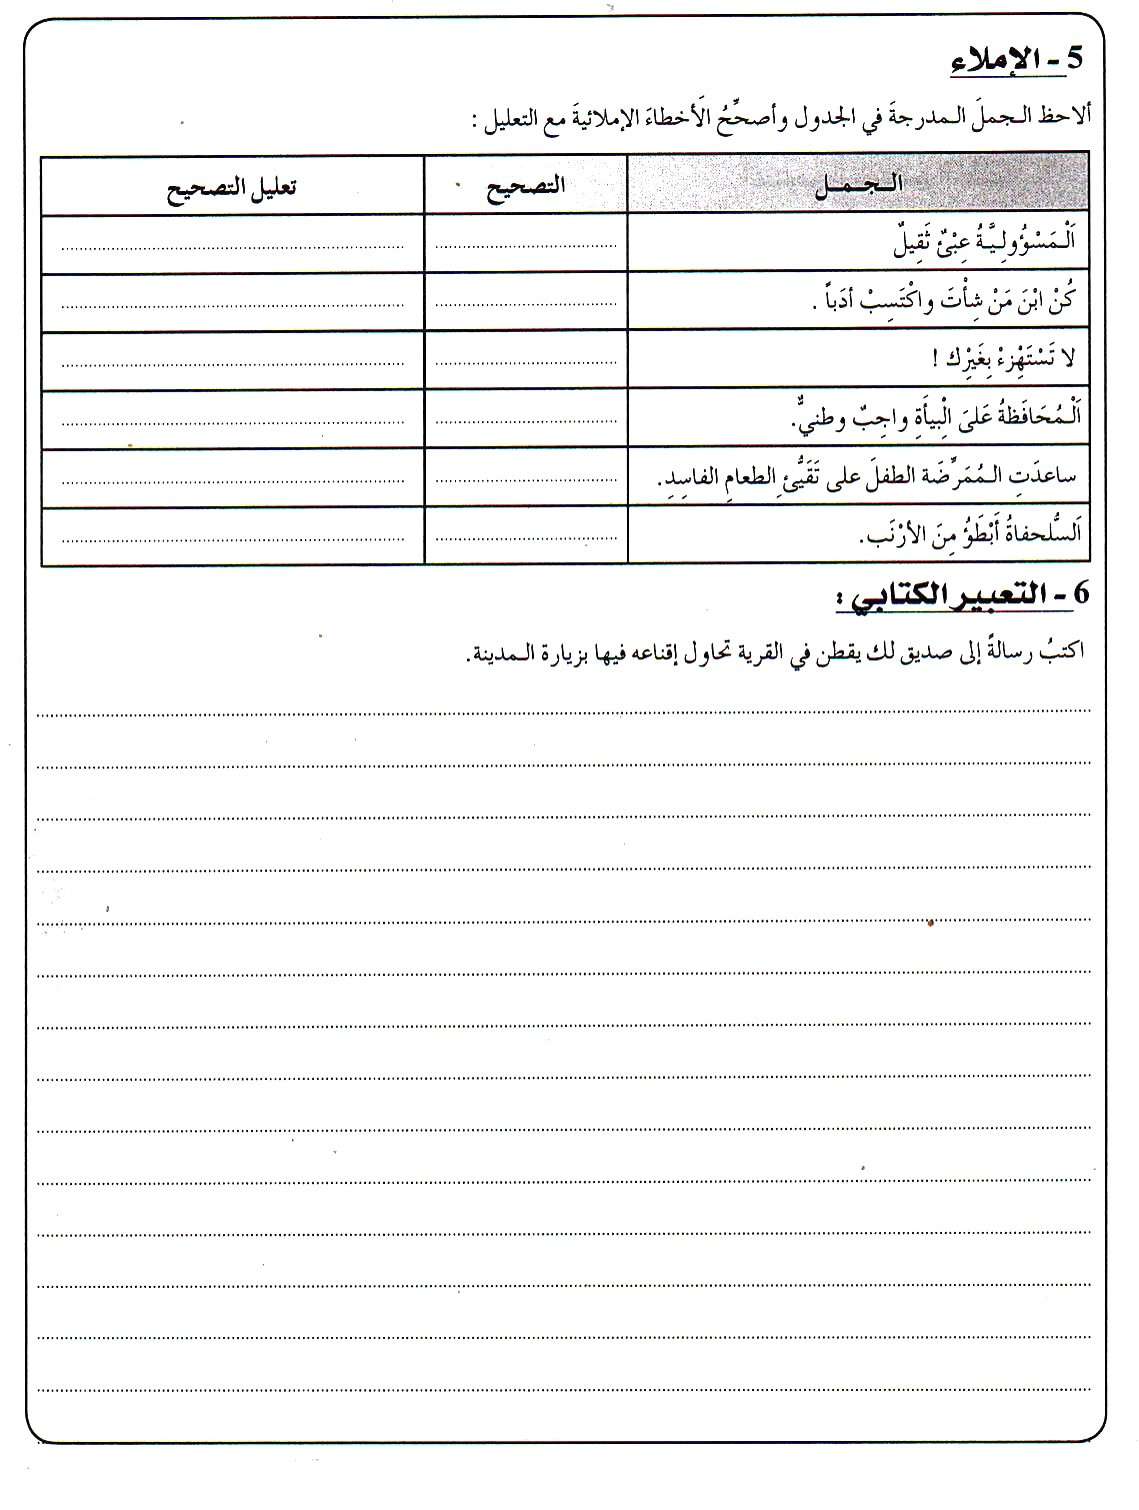 5 - الإملاء
ألاحظ الـجملَ الـمدرجةَ في الجدول وأصحِّحُ الَأخطاءَ الإملائيةَ مع التعليل :
الـجـمـل
التصحيح
تعليل التصحيح
اَلْـمَسْؤُولِـيَّـةُ عِبْئٌ ثَقِيلٌ
كُنْ ابْنَ مَنْ شِأْتَ واكْتَسِبْ أدَباً .
لا تَسْتَهْزِءْ بِغَيْرِك !
اَلْـمُحَافَظةُ عَلىَ الْبِيأَةِ واجِبٌ وطنيٌّ.
ساعدَتِ الـمُمَرِّضَة الطفلَ على تَقَيُّئِ الطعامِ الفاسِدِ.
اَلسُّلحفاةُ أَبْطَؤُ مِنَ الأرْنَب.
6 - التعبير الكتابي :
اكتبُ رسالةً إلى صديق لك يقطن في القرية تحاول إقناعه فيها بزيارة الـمدينة.